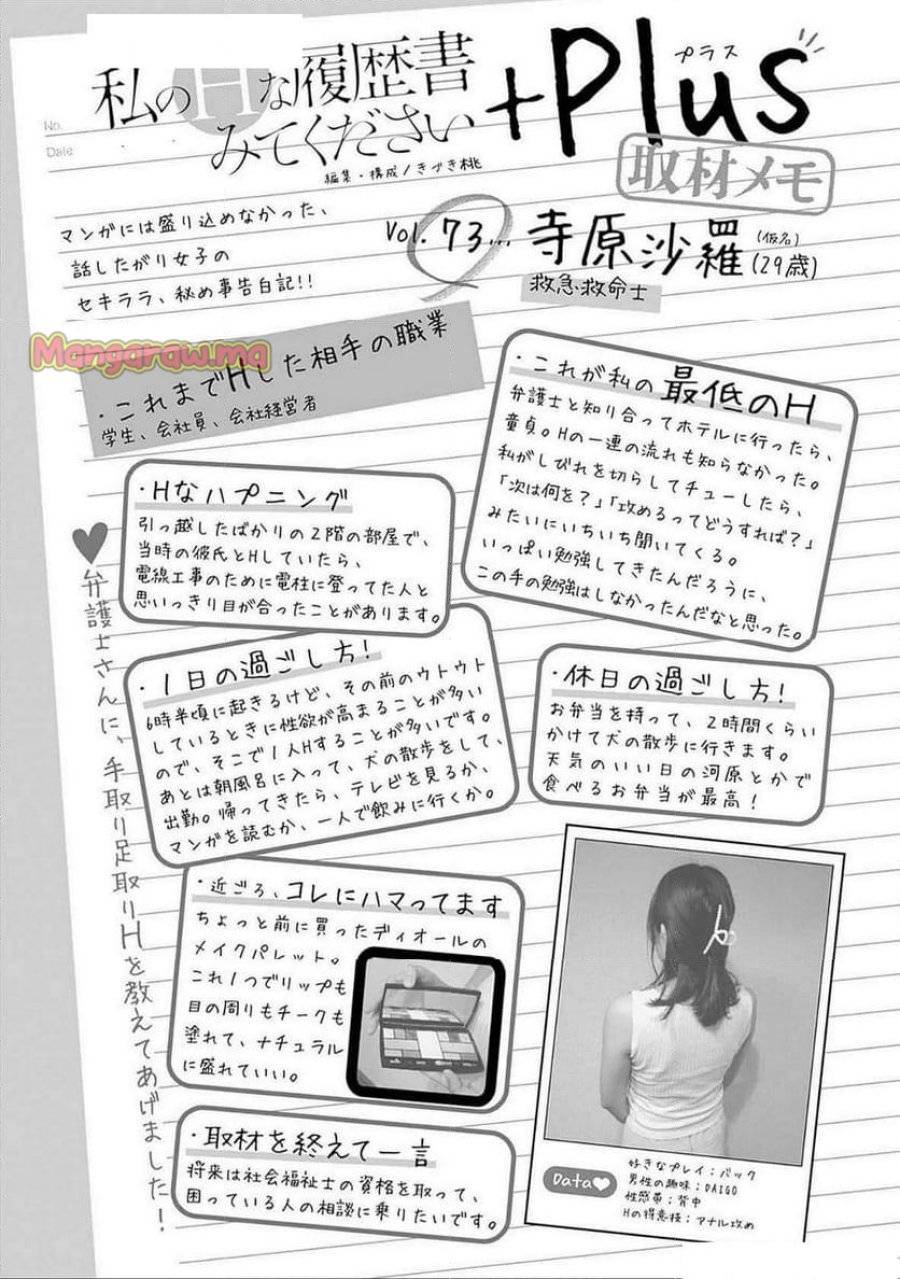 No.
Date
私のHな履歴書
みてください
+Plus
プラス
編集・構成/きづき桃
取材メモ
マンガには盛り込めなかった、
話したがり女子の
セキララ、秘め事告白記!!
Vol.73…
寺原沙羅
(仮名)
(29歳)
救急救命士
Mangaraw.ma
・これまでHした相手の職業
学生、会社員、会社経営者
・これが私の最低のH
弁護士と知り合ってホテルに行ったら、
童貞。Hの一連の流れも知らなかった。
私がしびれを切らしてチューしたら、
「次は何を?」「攻めるってどうすれば?」
みたいにいちいち聞いてくる。
いっぱい勉強してきたんだろうに、
この手の勉強はしなかったんだなと思った。
・Hなハプニング
引っ越したばかりの2階の部屋で、
当時の彼氏とHしていたら、
電線工事のために電柱に登ってた人と
思いっきり目が合ったことがあります。
♥弁護士さんに、手取り足取りHを教えてあげました!
・1日の過ごし方!
6時半頃に起きるけど、その前のウトウト
しているときに性欲が高まることが多い
ので、そこで1人Hすることが多いです。
あとは朝風呂に入って、犬の散歩をして、
出勤。帰ってきたら、テレビを見るか、
マンガを読むか、一人で飲みに行くか。
・休日の過ごし方!
お弁当を持って、2時間くらい
かけて犬の散歩に行きます。
天気のいい日の河原とかで
食べるお弁当が最高!
・近ごろ、コレにハマってます
ちょっと前に買ったディオールの
メイクパレット。
これ1つでリップも
目の周りもチークも
塗れて、ナチュラル
に盛れていい。
・取材を終えて一言
将来は社会福祉士の資格を取って、
困っている人の相談に乗りたいです。
Data♥
好きなプレイ:バック
男性の趣味:DAIGO
性感帯:背中
Hの得意技:アナル攻め